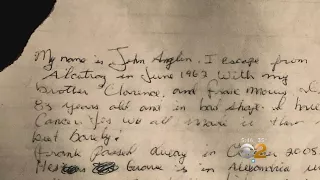 My name is John Anglin. I escape from
Alcatraz in June 1962 with my
brother Clarence, and Frank Morris. I'm
83 years old and in bad shape. I have
Cancer. Yes we all made it that
but barely!
(Frank passed away in October 2005.
His Grave is in Alexandria
2